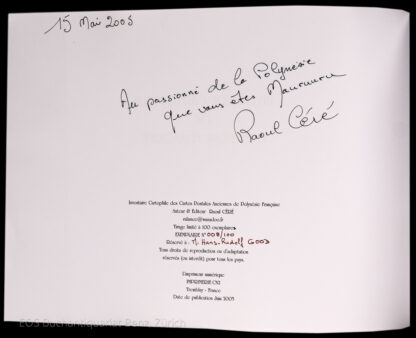 15 Mai 2003
Au passionné de la Polynésie
que vous êtes Mauruuru
Raoul Céré
Inventaire Cartophile des Cartes Postales Anciennes de Polynésie Française
Auteur & Editeur Raoul CÉRÉ
Tirage limité à 100 exemplaires
EXEMPLAIRE N° 008/100
Réservé à : M. Hans-Rudolf
Tous droits de reproduction ou d'adaptation
réservés (ou interdit) pour tous les pays.
Impression numérique
IMPRIMERIE
Tremblay - France
Date de publication Juin 2003
EOS Buchantiquariat Benz, Zürich